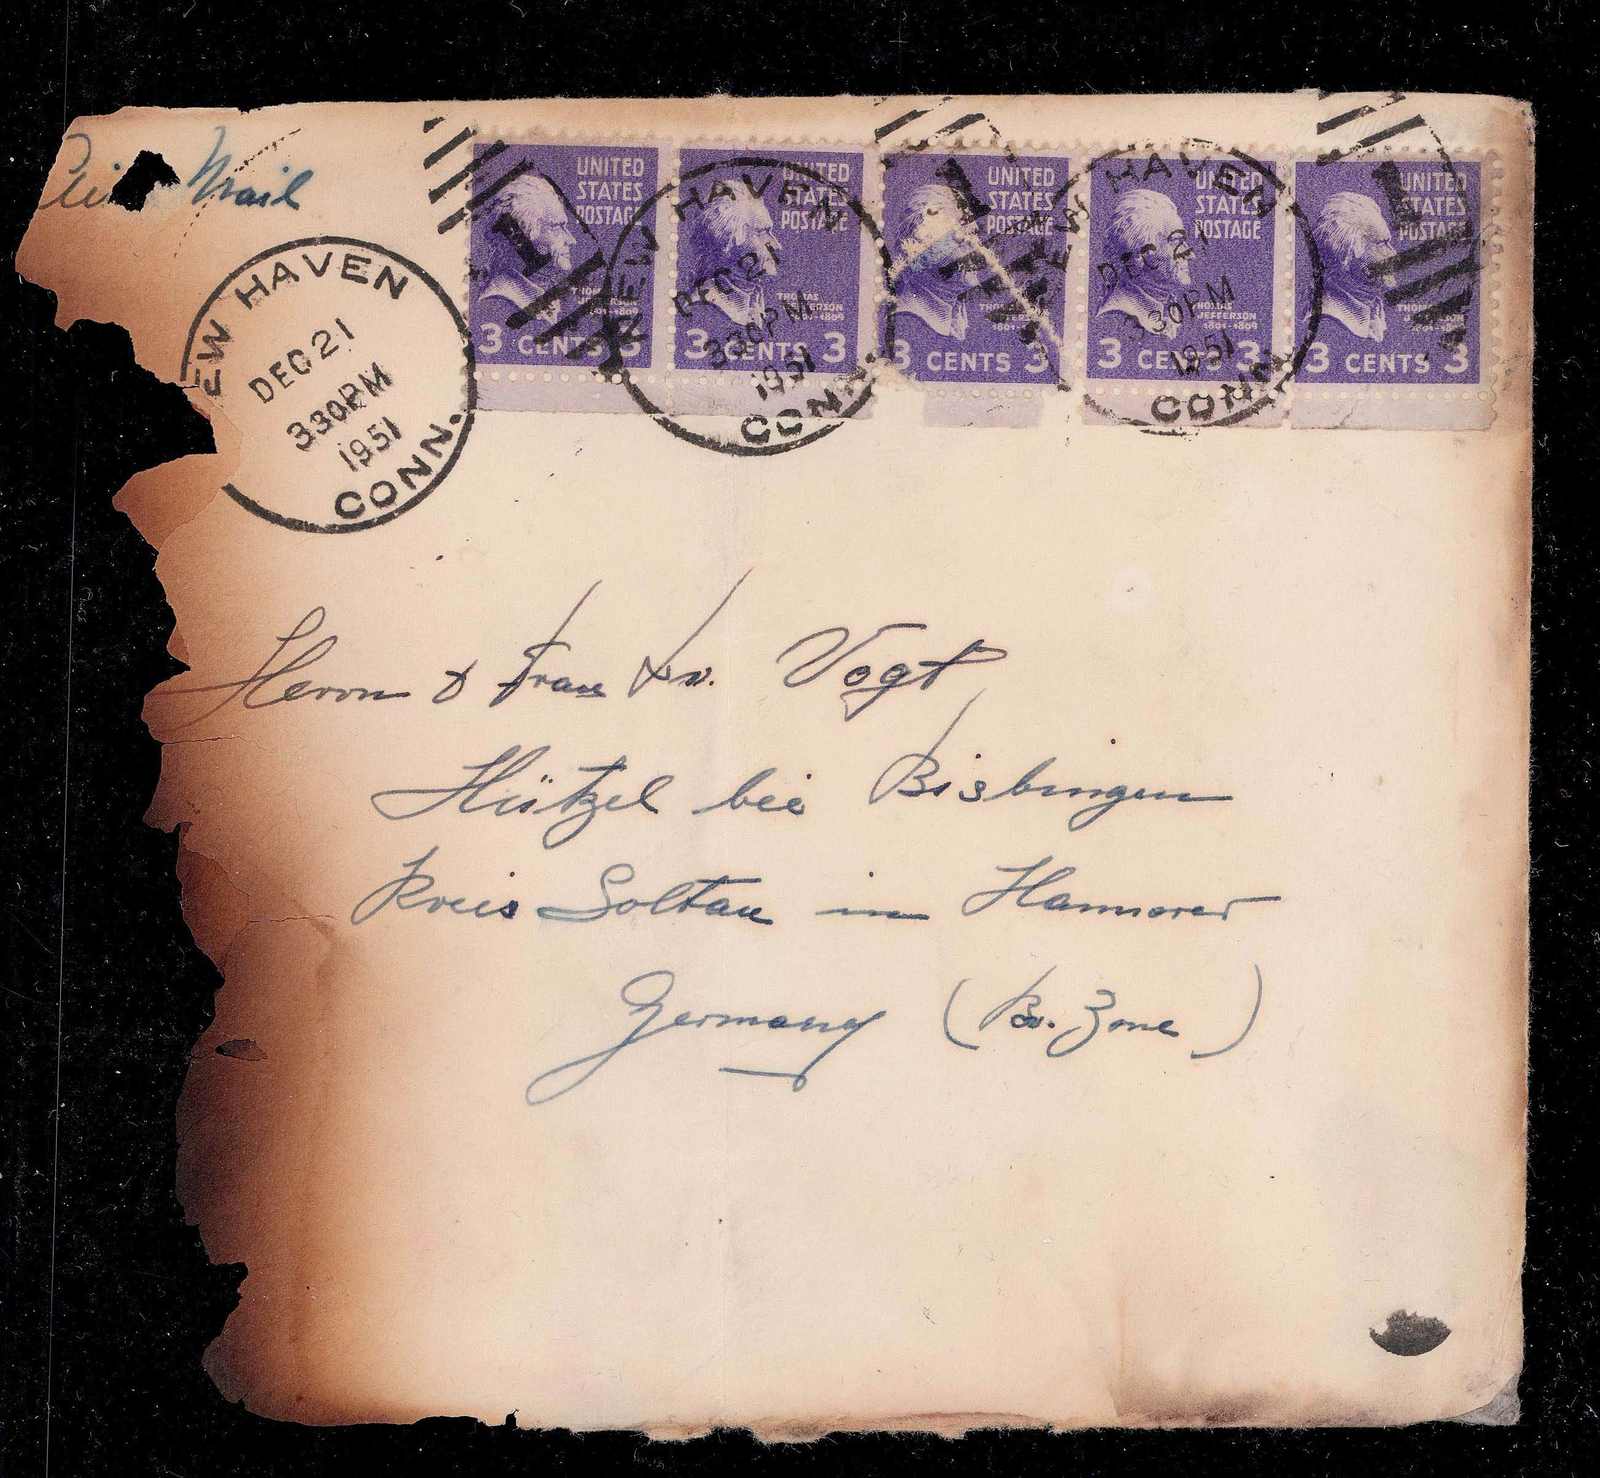 Air Mail
NEW HAVEN
DEC 21
330PM
1951
CONN.
UNITED
STATES
POSTAGE
THOMAS
JEFFERSON
1801-1809
3 CENTS 3
NEW HAVEN
DEC 21
330PM
1951
CONN.
UNITED
STATES
POSTAGE
THOMAS
JEFFERSON
1801-1809
3 CENTS 3
UNITED
STATES
POSTAGE
3 CENTS 3
NEW HAVEN
DEC 21
330PM
1951
CONN.
UNITED
STATES
POSTAGE
THOMAS
JEFFERSON
1801-1809
3 CENTS 3
UNITED
STATES
POSTAGE
THOMAS
JEFFERSON
1801-1809
3 CENTS 3
Herrn & Frau v. Vogt
Hützel bei Bisbingen
Kreis Soltau in Hannover
Germany (Br. Zone)